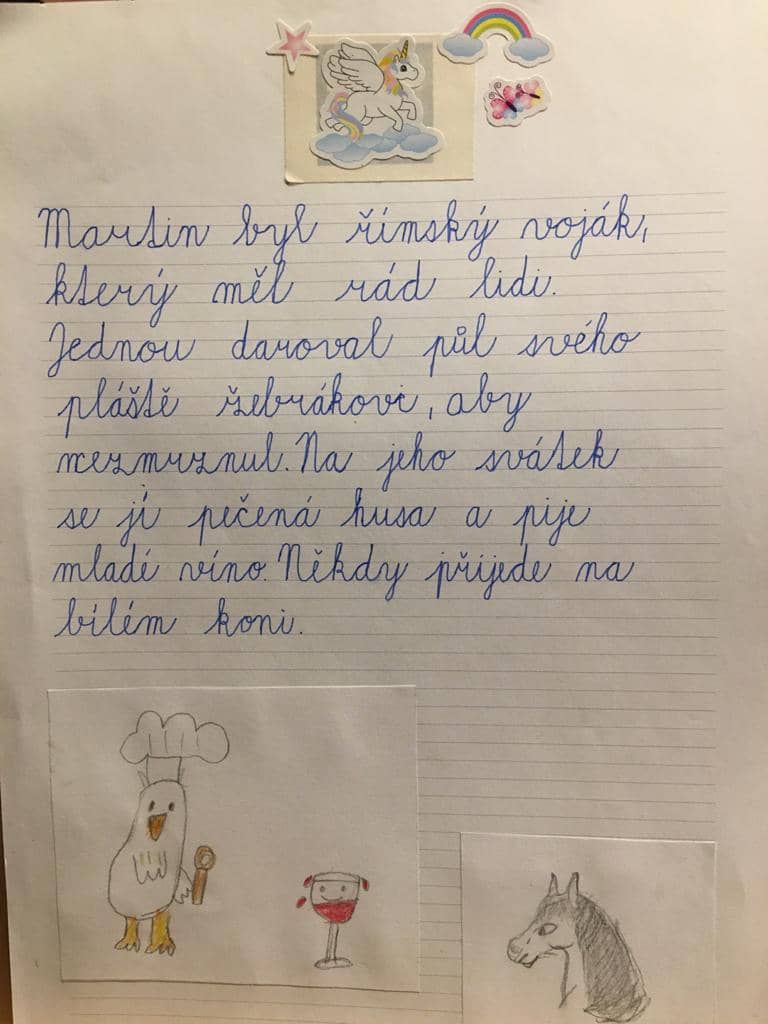 Martin byl římský voják,
který měl rád lidi.
Jednou daroval půl svého
pláště žebrákovi, aby
nezmrznul. Na jeho svátek
se jí pečená husa a pije
mladé víno. Někdy přijede na
bílém koni.